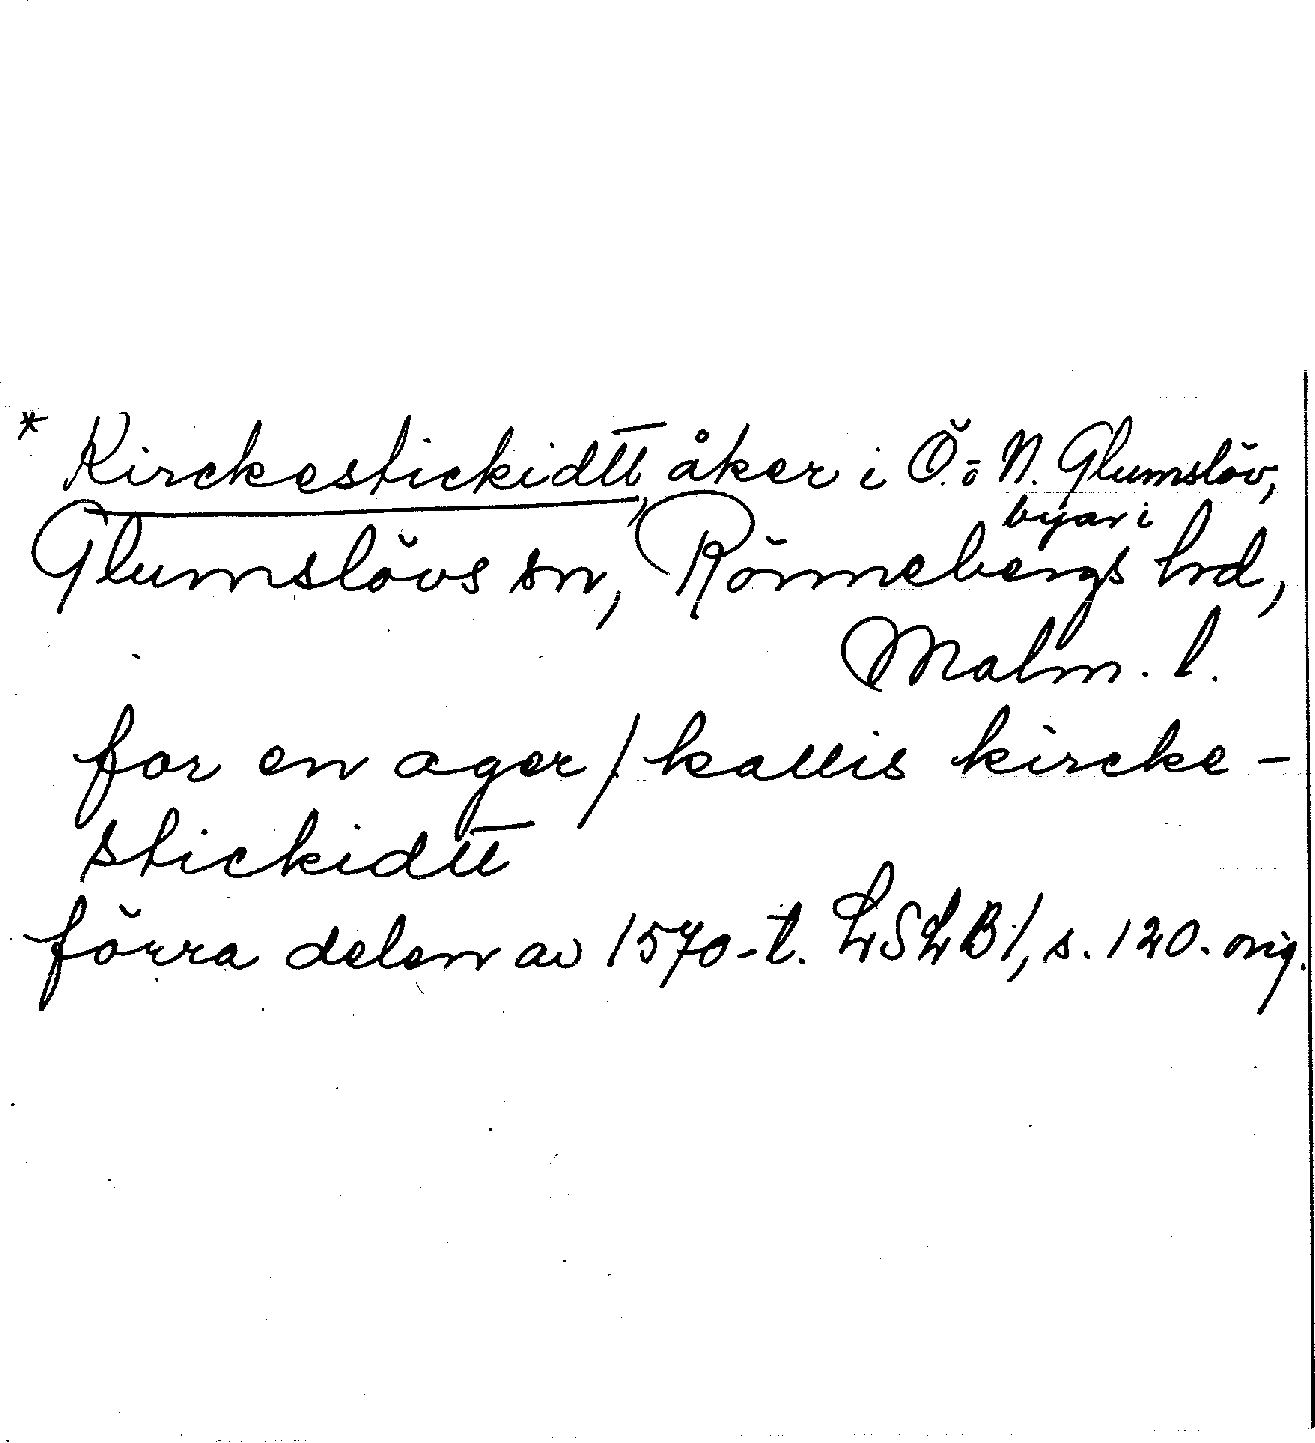 * Kirckestickidtt, åker i Ö. o N. Glumslöv,
byar i
Glumslövs sn, Rönnebergs hrd,
Malm. l.
for en ager / kallis kircke-
stickidtt
förra delen av 1570-t. LSLB 1, s. 120. orig.